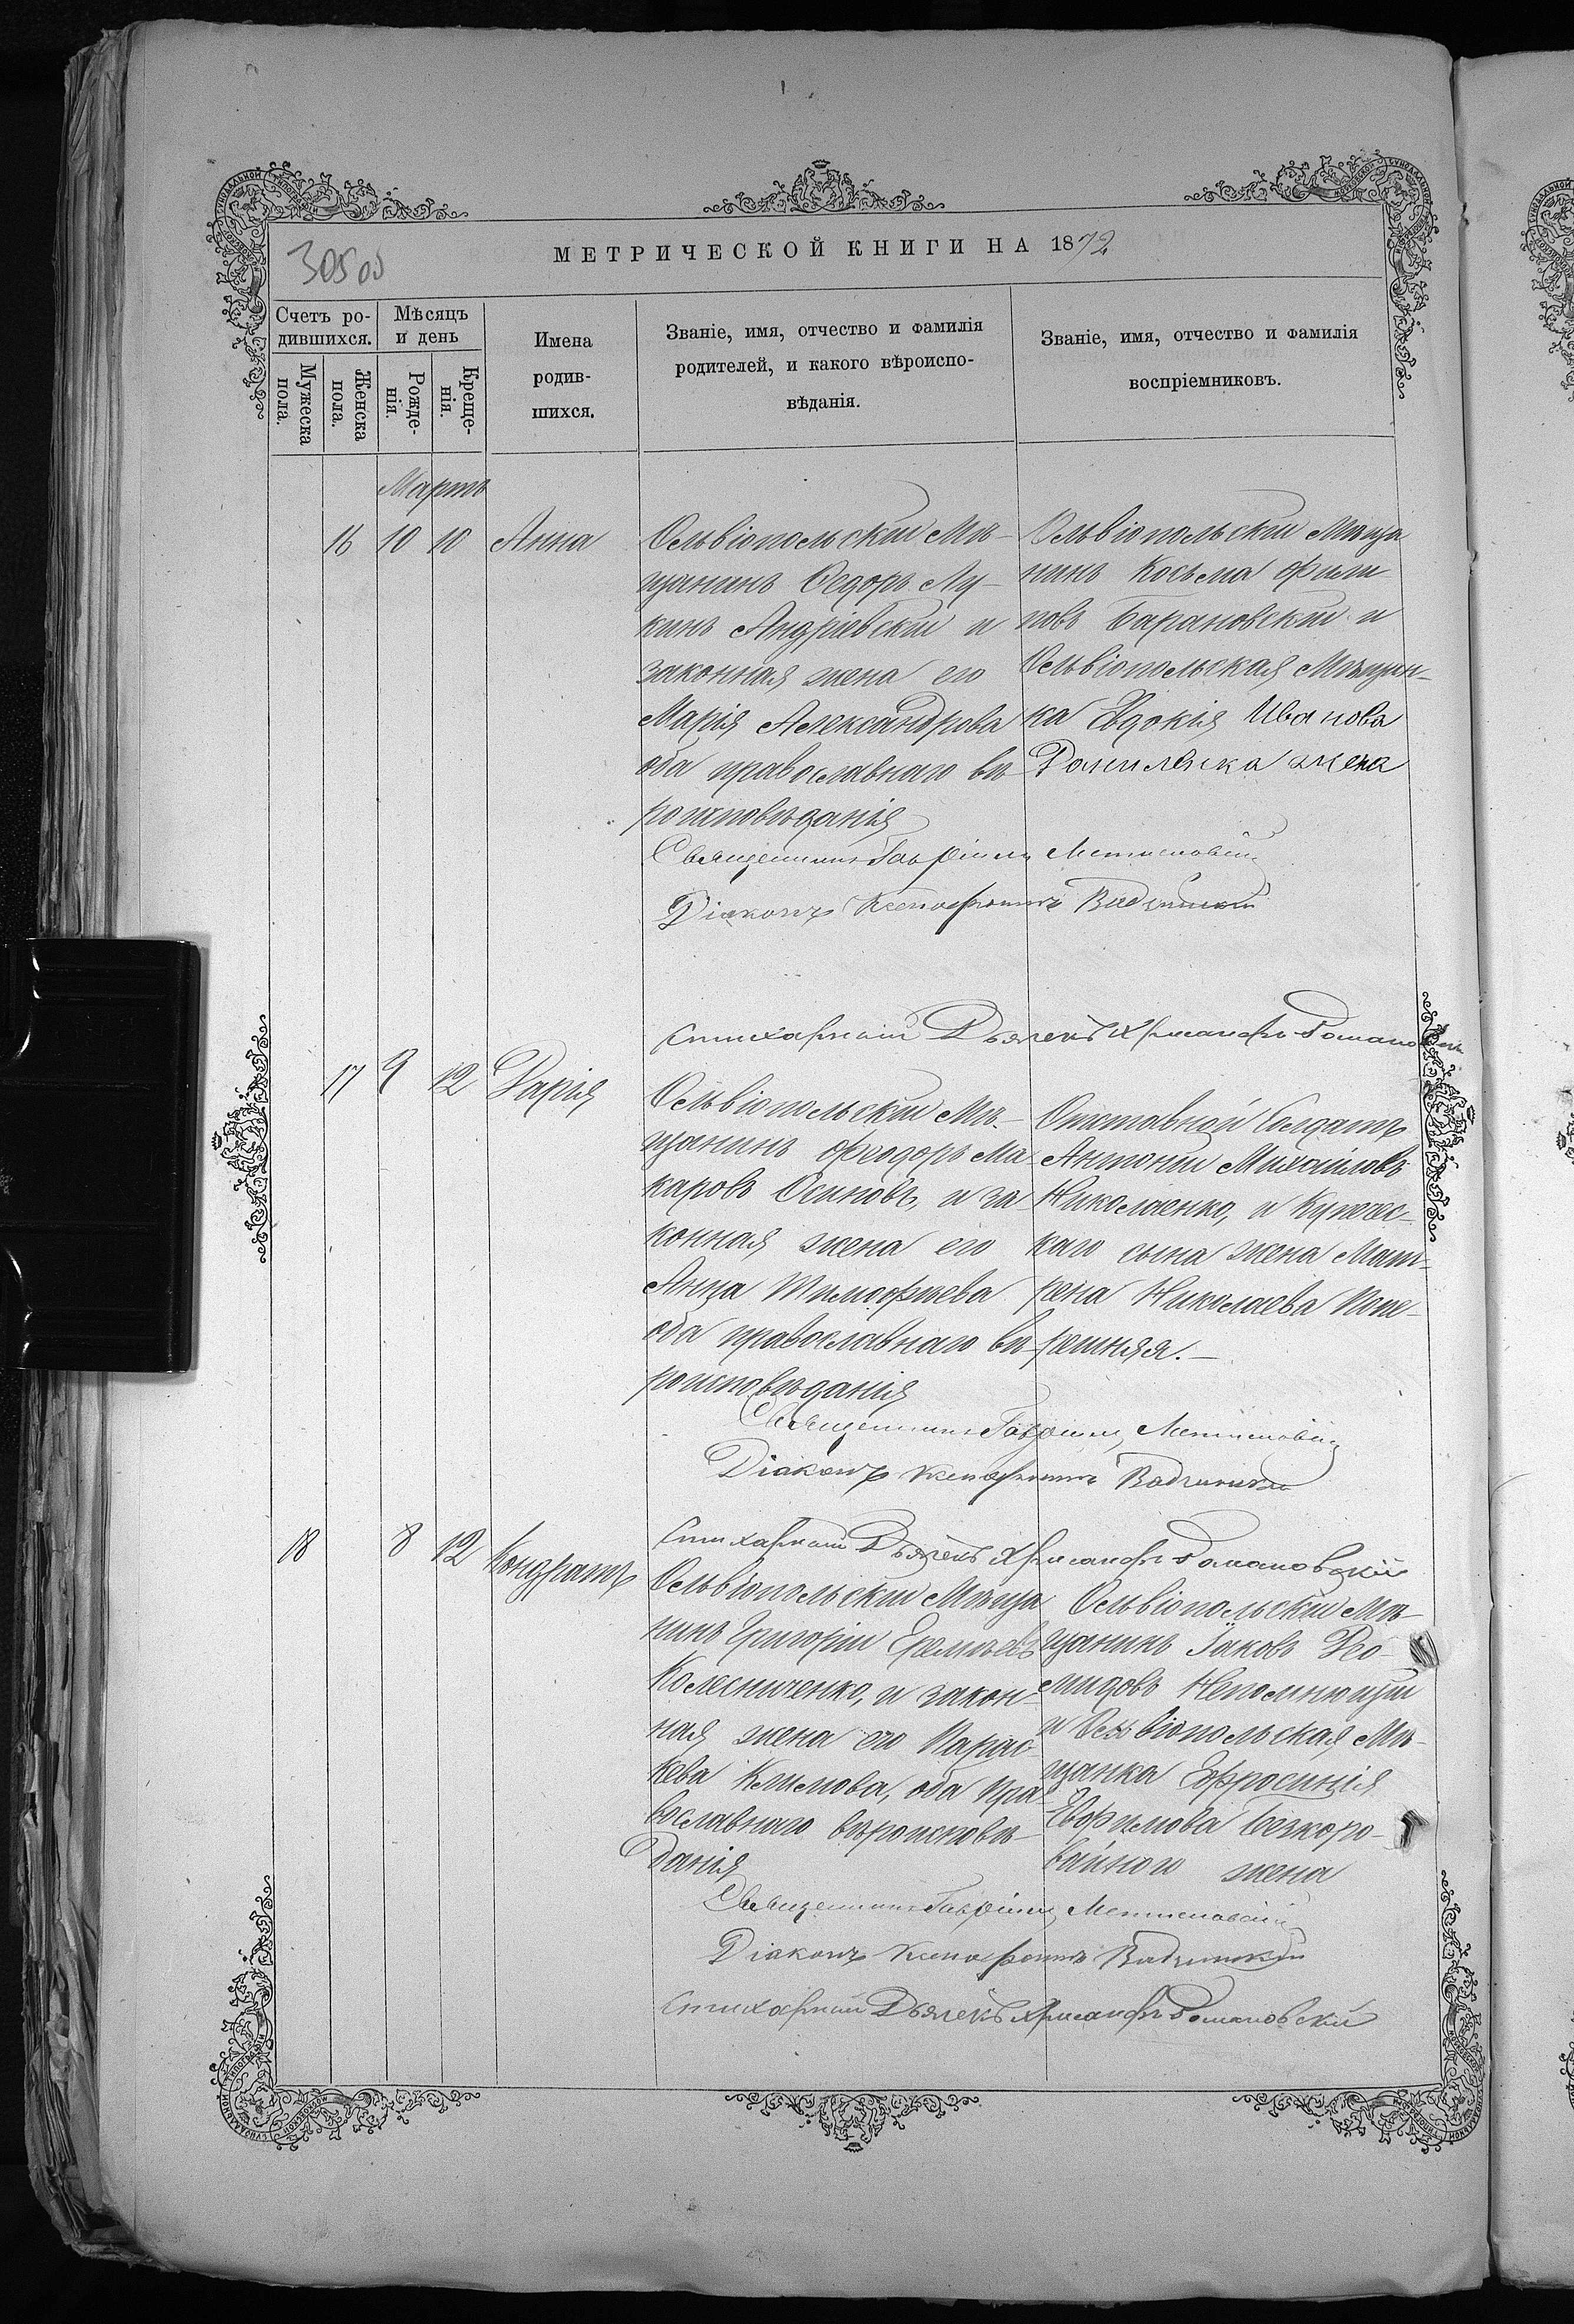 МЕТРИЧЕСКОЙ КНИГИ НА 1872
Счетъ ро-
дившихся.
Мѣсяцъ
и день
Мужеска
пола.
Женска
пола.
Рожде-
нія.
Креще-
нія.
Имена
родив-
шихся.
Званіе, имя, отчество и фамилія
родителей, и какого вѣроиспо-
вѣданія.
Званіе, имя, отчество и фамилія
воспріемниковъ.
Мартъ
16 10 10 Анна
Ольвіопольскій Мѣ-
щанинъ Ѳедоръ Лу-
кинъ Андріевскій и
законная жена его
Марія Александрова
оба православнаго вѣ-
роисповѣданія
Ольвіопольскій Мѣща
нинъ Косьма Фили
повъ Барановскій и
Ольвіопольская Мѣщан-
ка Евдокія Иванова
жена
Священникъ Гавріилъ
Діаконъ Ксенофонтъ
Стихарный Дьячекъ Хрисанфъ Романовскій
17 9 12 Дарія
Ольвіопольскій Мѣ-
щанинъ Феодоръ Ма-
каровъ Осиповъ, и за-
конная жена его
Анна Тимофѣева
оба православнаго вѣ-
роисповѣданія
Отставной Солдатъ
Антоній Михайловъ
Николаенко, и Купечес-
каго сына жена Мат-
рена Николаева Попе-
решняя.-
Священникъ Гавріилъ
Діаконъ Ксенофонтъ
Стихарный Дьячекъ Хрисанфъ Романовскій
18 8 12 Кондратъ
Ольвіопольскій Мѣща
нинъ Григорій Еремѣевъ
Колесниченко, и закон-
ная жена его Парас-
кева Климова, оба пра-
вославнаго вѣроисповѣ-
данія
Ольвіопольскій Мѣ-
щанинъ Іаковъ ДІо-
мидовъ Непомнющій
и Ольвіопольская Мѣ-
щанка Ефросинія
Евфимова Безкоро-
вайного жена
Священникъ Гавріилъ
Діаконъ Ксенофонтъ
Стихарный Дьячекъ Хрисанфъ Романовскій